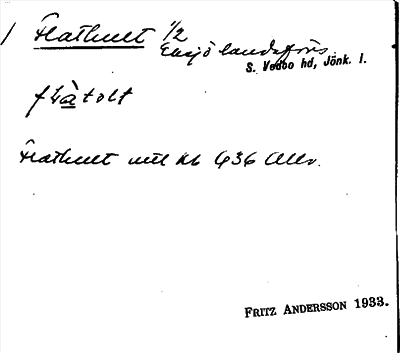 1 Flathult 1/2
Eksjö landsförs.
S. Vedbo hd, Jönk. l.
flàtolt
Flathult mtl Kb 436 Allv.
FRITZ ANDERSSON 1933.